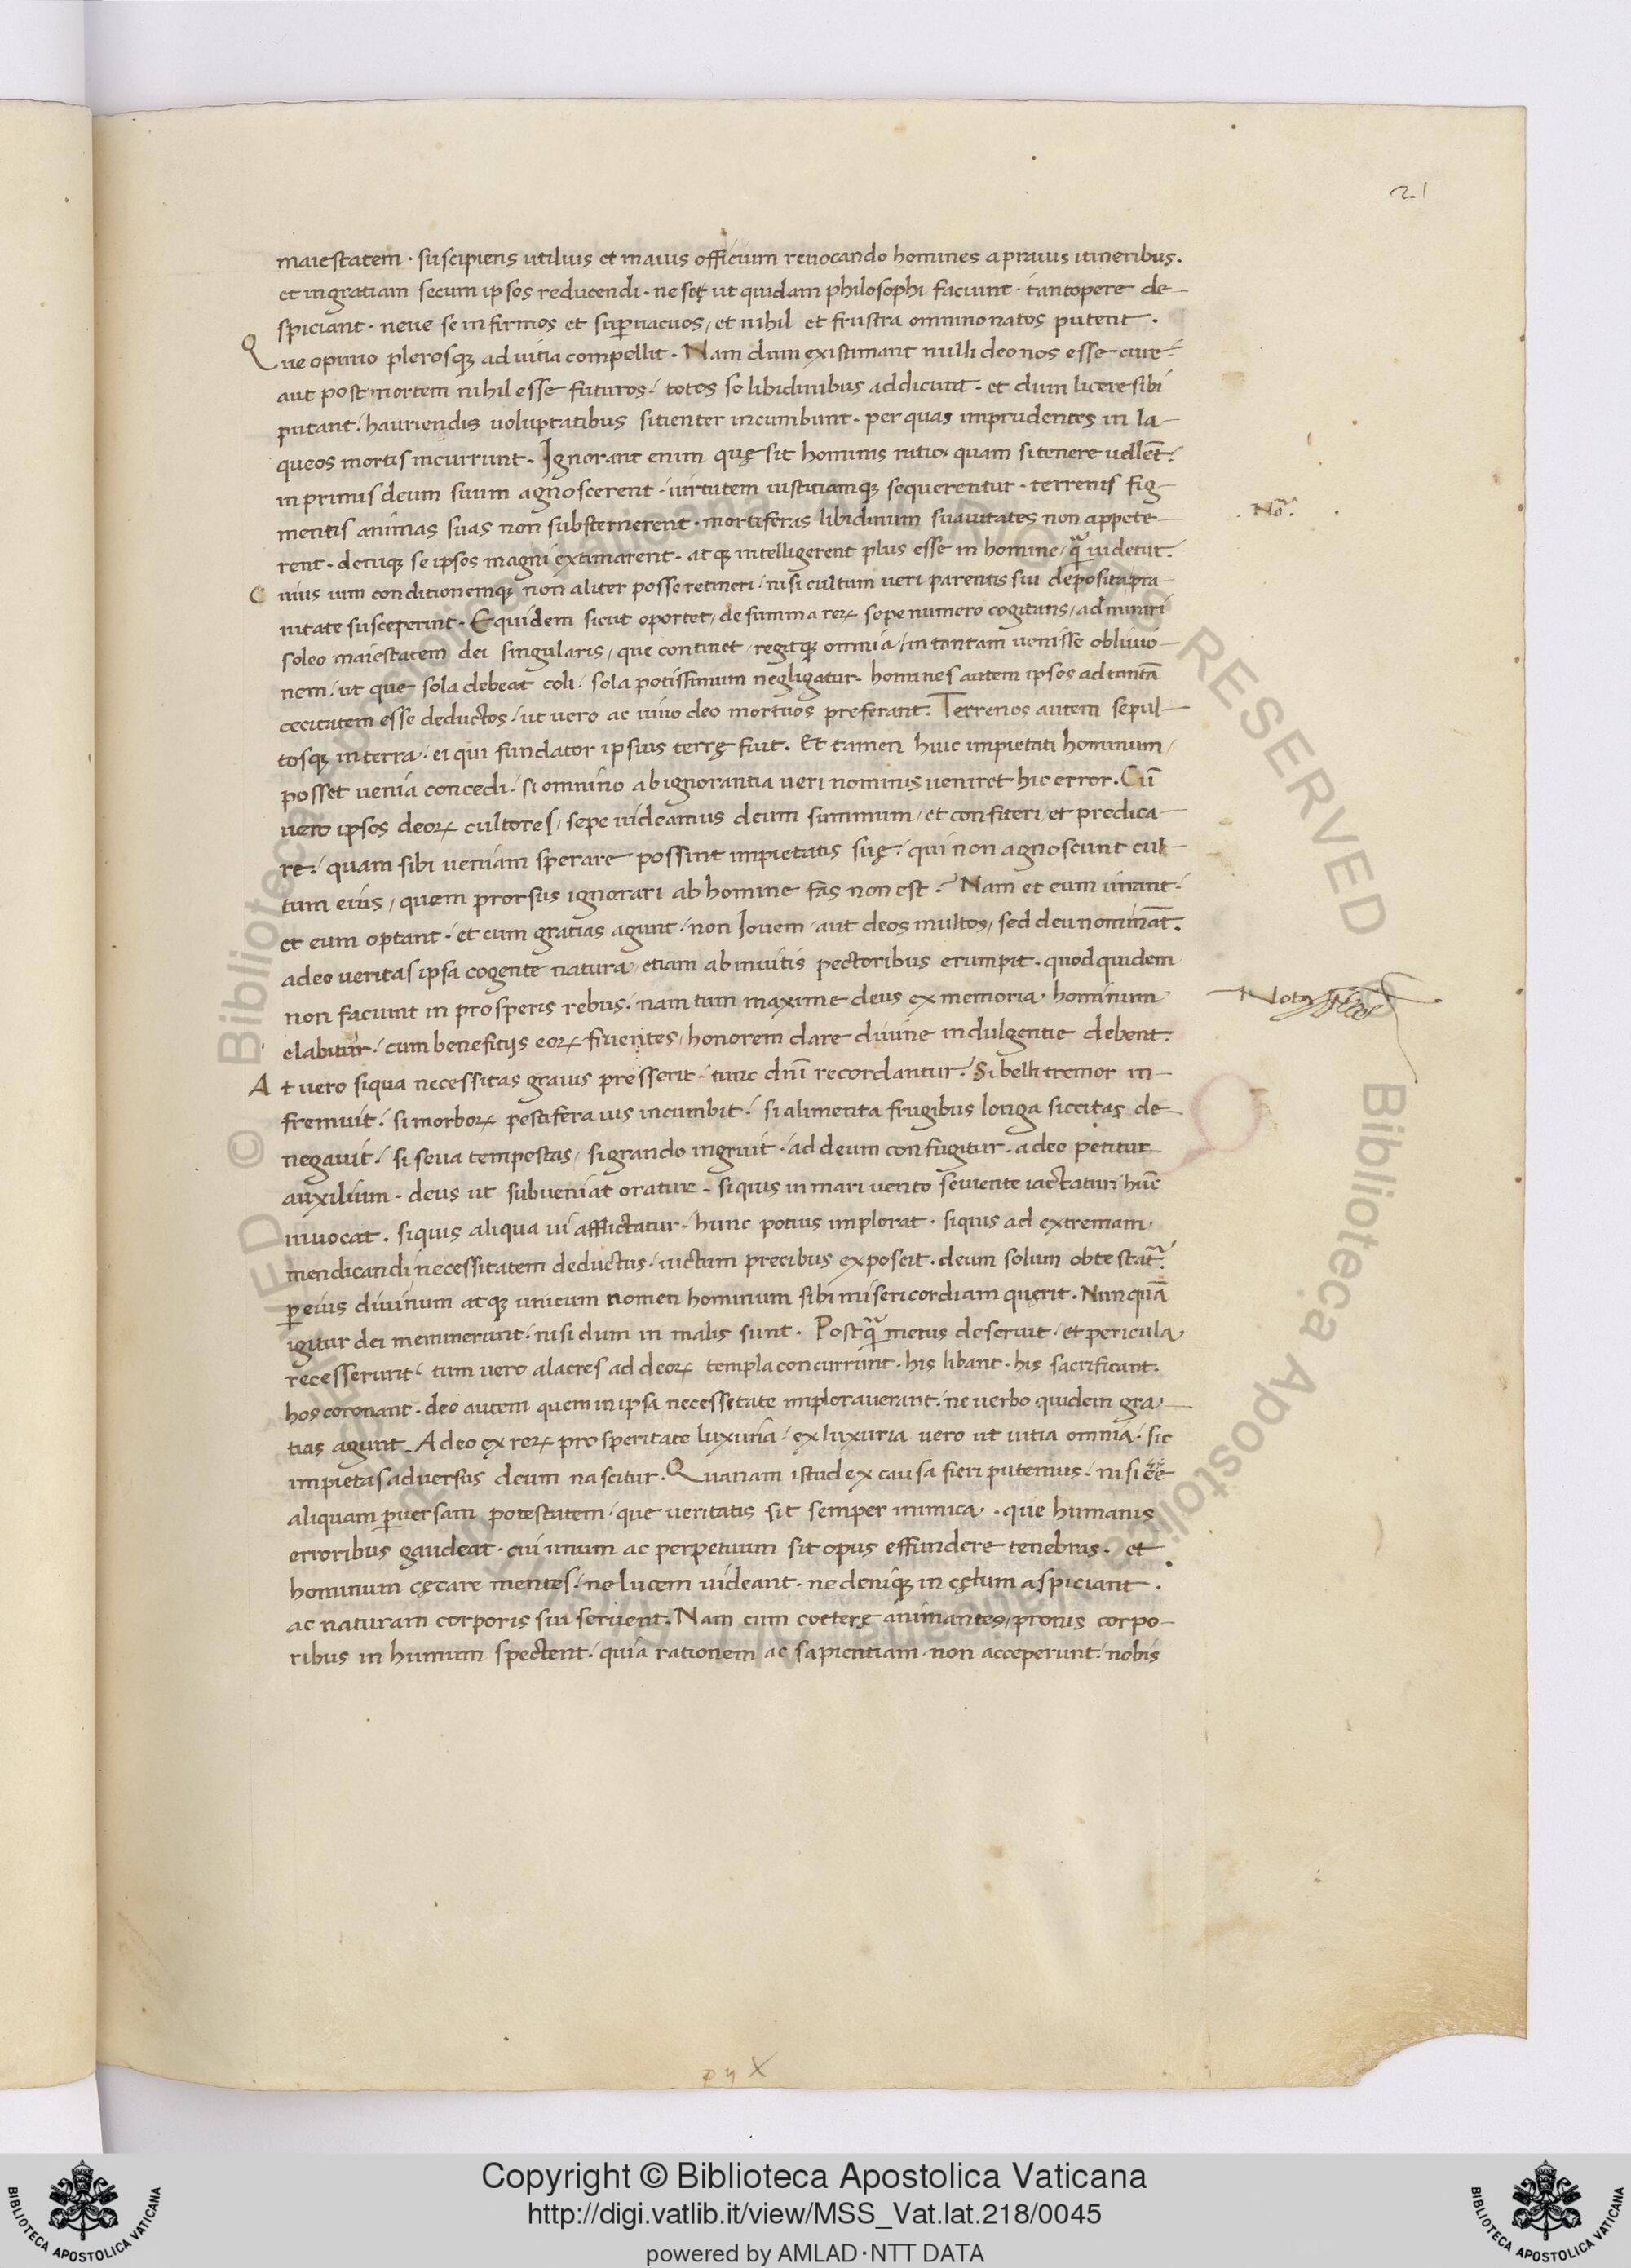 21
maiestatem · suscipiens utilius et maius officium reuocando homines a prauis itineribus.
et in gratiam secum ipsos reducendi · ne se ut quidam philosophi faciunt · tantopere de-
spiciant · neue se infirmos et suꝑuacuos, et nihil et frustra omnino natos putent.
Que opinio plerosqꝫ ad uitia compellit. Nam dum existimant nulli deo nos esse cure:
aut post mortem nihil esse futuros: totos se libidinibus addicunt. et dum licere sibi
putant: hauriendis uoluptatibus sitienter incumbunt. per quas imprudentes in la-
queos mortis incurrunt. Ignorant enim quę sit hominis ratio, quam si tenere uellēt:
in primis deum suum agnoscerent. uirtutem iustitiamqꝫ sequerentur. terrenis fig-
mentis animas suas non substernerent. mortiferas libidinum suauitates non appete-
rent. deniqꝫ se ipsos magni extimarent. atqꝫ intelligerent plus esse in homine, q̄ uidetur.
Cuius uim conditionemqꝫ non aliter posse retineri: nisi cultum ueri parentis sui deposita pra-
uitate susceperint. Equidem sicut oportet, de summa reꝝ sepenumero cogitans, admirari
soleo maiestatem dei singularis, que continet, regitqꝫ omnia, in tantam uenisse obliuio-
nem: ut que sola debeat coli: sola potissimum negligatur. homines autem ipsos ad tantā
cecitatem esse deductos: ut uero ac uiuo deo mortuos preferant. Terrenos autem sepul-
tosqꝫ in terra: ei qui fundator ipsius terrę fuit. Et tamen huic impietati hominum,
posset uenia concedi: si omnino ab ignorantia ueri nominis ueniret hic error. Cū
uero ipsos deoꝝ cultores, sepe uideamus deum summum, et confiteri, et predica-
re: quam sibi ueniam sperare possint impietatis suę: qui non agnoscunt cul-
tum eius, quem prorsus ignorari ab homine fas non est? Nam et cum iurant:
et cum optant: et cum gratias agunt: non Iouem, aut deos multos, sed deū nomināt.
adeo ueritas ipsa cogente natura, etiam ab inuitis pectoribus erumpit. quod quidem
non faciunt in prosperis rebus: nam tum maxime deus ex memoria hominum
elabitur: cum beneficijs eoꝝ fruentes, honorem dare diuine indulgentie debent.
At uero siqua necessitas grauis presserit: tunc dn̄i recordantur. Si belli tremor in-
fremuit: si morboꝝ pestifera uis incumbit: si alimenta frugibus longa siccitas de-
negauit: si seua tempestas, si grando ingruit: ad deum confugitur. a deo petitur
auxilium. deus ut subueniat oratur. siquis in mari uento seuiente iactatur: hūc
inuocat. siquis aliqua ui afflictatur, hunc potius implorat. siquis ad extremam
mendicandi necessitatem deductus, uictum precibus exposcit. deum solum obtestat̃.
ꝑ eius diuinum atqꝫ unicum nomen hominum sibi misericordiam quęrit. Nunquā
igitur dei meminerunt: nisi dum in malis sunt. Postq̄ metus deseruit, et pericula
recesserunt: tum uero alacres ad deoꝝ templa concurrunt. his libant. his sacrificant.
hos coronant. deo autem quem in ipsa necessitate implorauerant: ne uerbo quidem gra-
tias agunt. Adeo ex reꝝ prosperitate luxuria: ex luxuria uero ut uitia omnia: sic
impietas aduersus deum nascitur. Quanam istud ex causa fieri putemus: nisi ēe
aliquam ꝑuersam potestatem, que ueritatis sit semper inimica. que humanis
erroribus gaudeat. cui unum ac perpetuum sit opus effundere tenebras. et
hominum cęcare mentes: ne lucem uideant. ne deniqꝫ in cęlum aspiciant.
ac naturam corporis sui seruent. Nam cum coeterę animantes, pronis corpo-
ribus in humum spectent: quia rationem ac sapientiam non acceperunt: nobis
No^a.
Nota
Copyright © Biblioteca Apostolica Vaticana
http://digi.vatlib.it/view/MSS_Vat.lat.218/0045
powered by AMLAD·NTT DATA
BIBLIOTECA APOSTOLICA VATICANA
BIBLIOTECA APOSTOLICA VATICANA